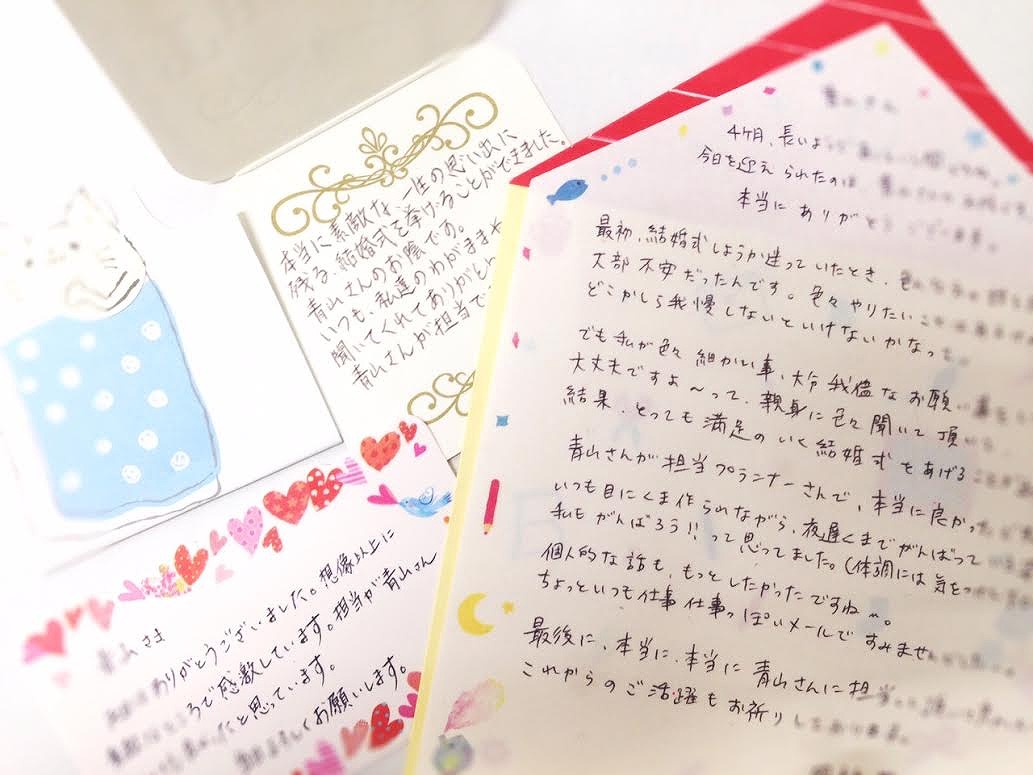 本当に素敵な、一生の思い出に
残る、結婚式を挙げることができました。
青山さんのお陰です。
いつも、私達のわがままや
聞いてくれてありがと
青山さんが担当で
青山さま
ありがとうございました。想像以上に
ろで感激しています。担当が青山さん
と思っています。
よろしくお願いします。
4ヶ月、長いよう
今日を迎えられたのは、
本当にありがとうございます。
最初、結婚式しようか迷っていたとき、色
大部不安だったんです。色々やりたいこ
どこかしら我慢しないといけないかなって。
でも私が色々細かい事、大分我儘なお願い事
大丈夫ですよ〜って、親身に色々聞いて頂い
結果、とっても満足のいく結婚式をあげること
青山さんが担当プランナーさんで、本当に良かった
いつも目にくま作られながら、夜遅くまでがんばって
私もがんばろう!!って思ってました。(体調には気を
個人的な話も、もっとしたかったですね〜。
ちょっといつも仕事仕事っぽいメールですみません
最後に、本当に、本当に青山さんに担当
これからのご活躍もお祈りしております。